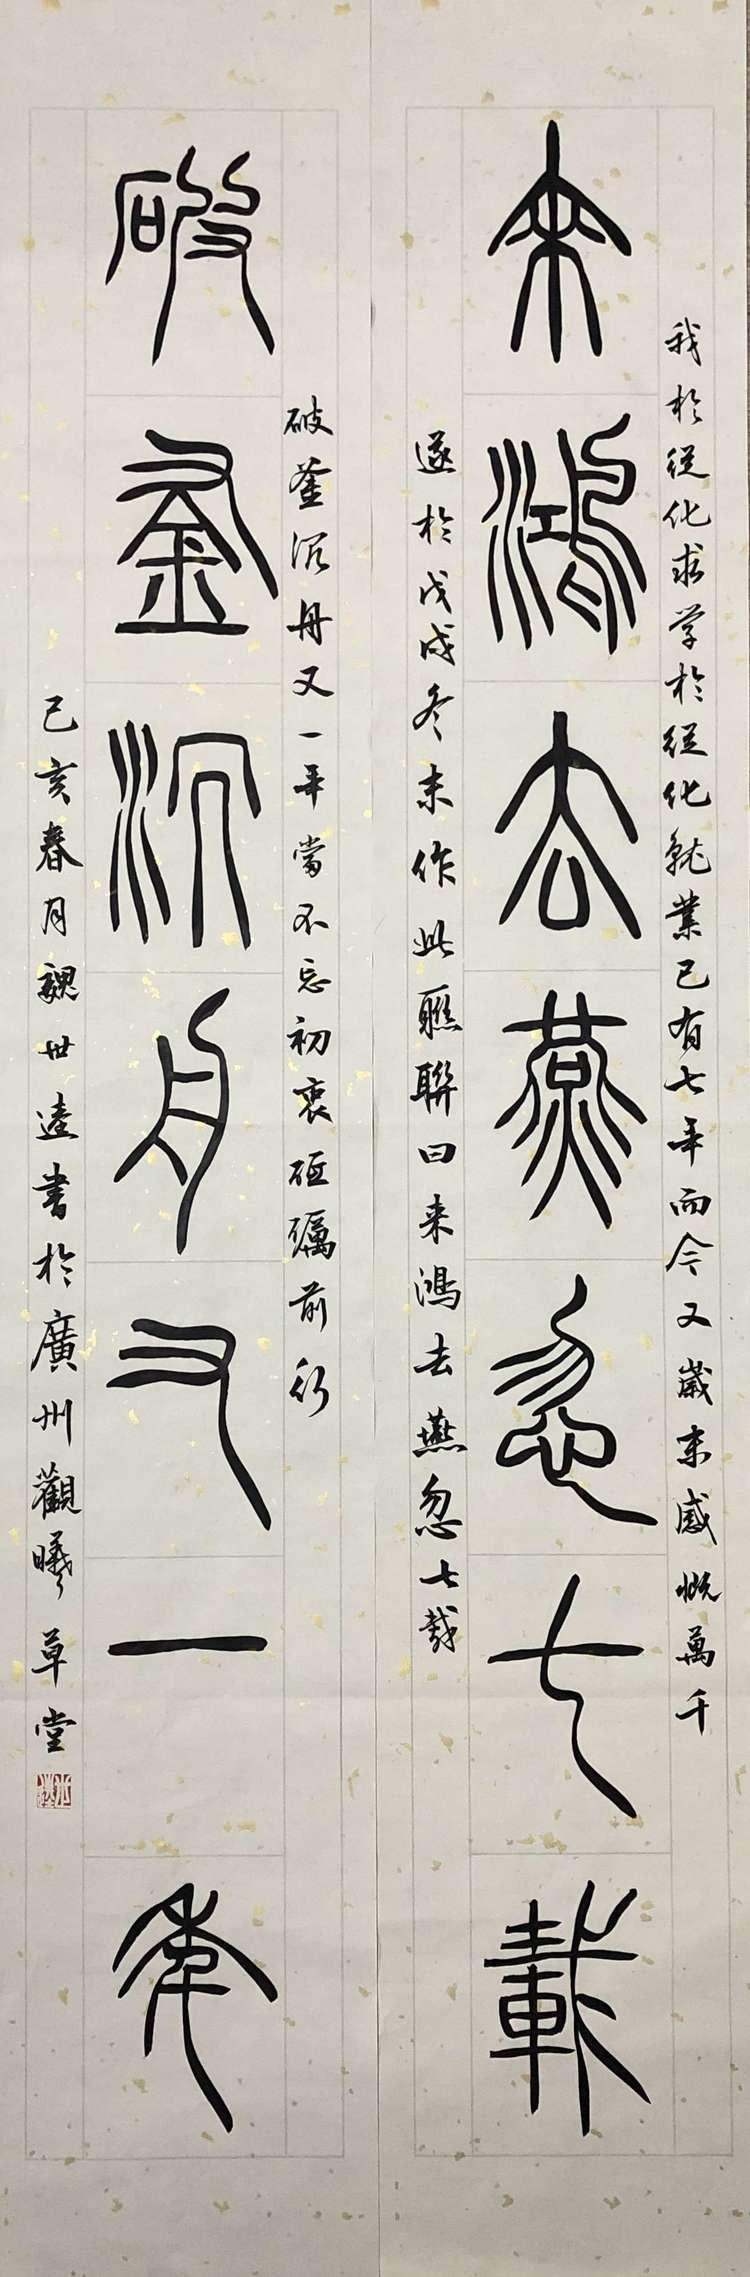 我於從化求学於從化就業已有七年而今又歲末感慨萬千
来鴻去燕忽七載
遂於戊戌冬末作此聯聯曰来鴻去燕忽七載
破釜沉舟又一年當不忘初衷砥礪前行
破釜沉舟又一年
己亥春月魏世遠書於廣州觀曦草堂